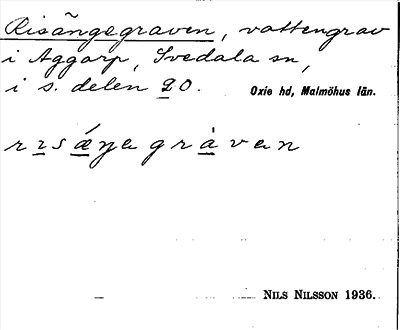 Risängegraven, vattengrav
i Aggarp, Svedala sn,
i s. delen 20. Oxie hd, Malmöhus län.
rɪsǽŋagrávan
NILS NILSSON 1936.